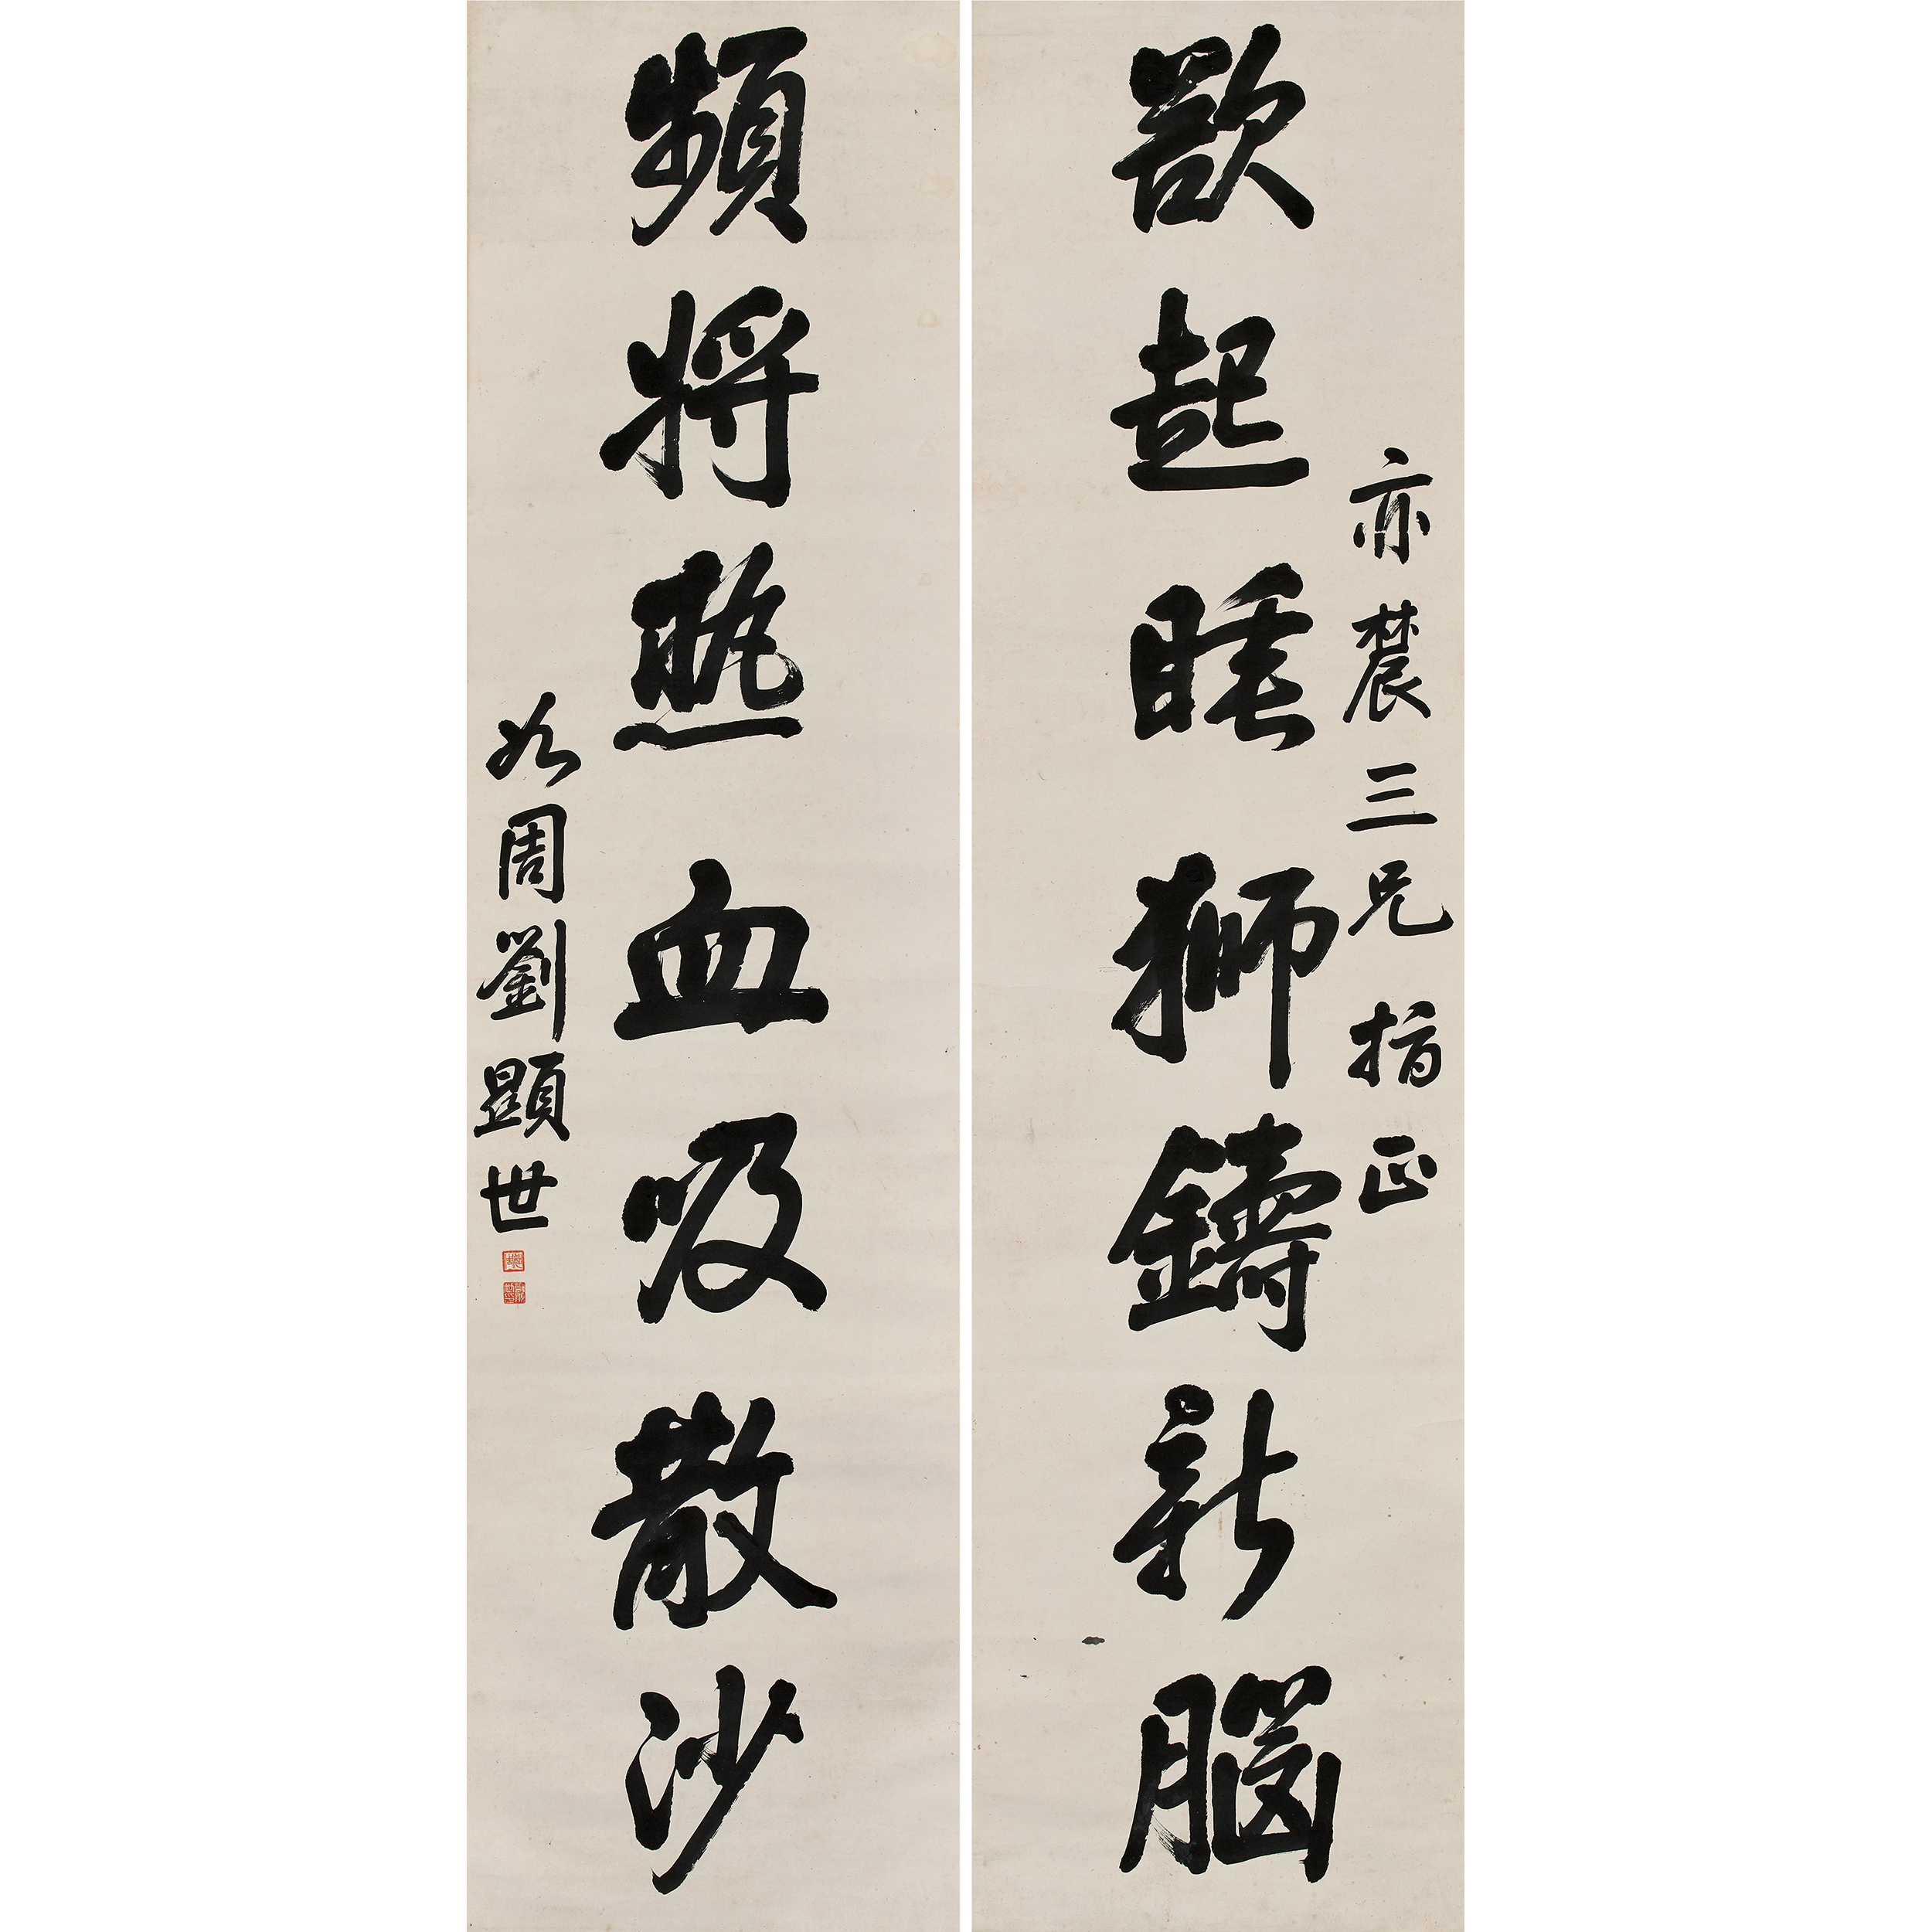 亦農三兄指正
欲起睡獅鑄新腦
頻將熱血吸散沙
如周劉顯世